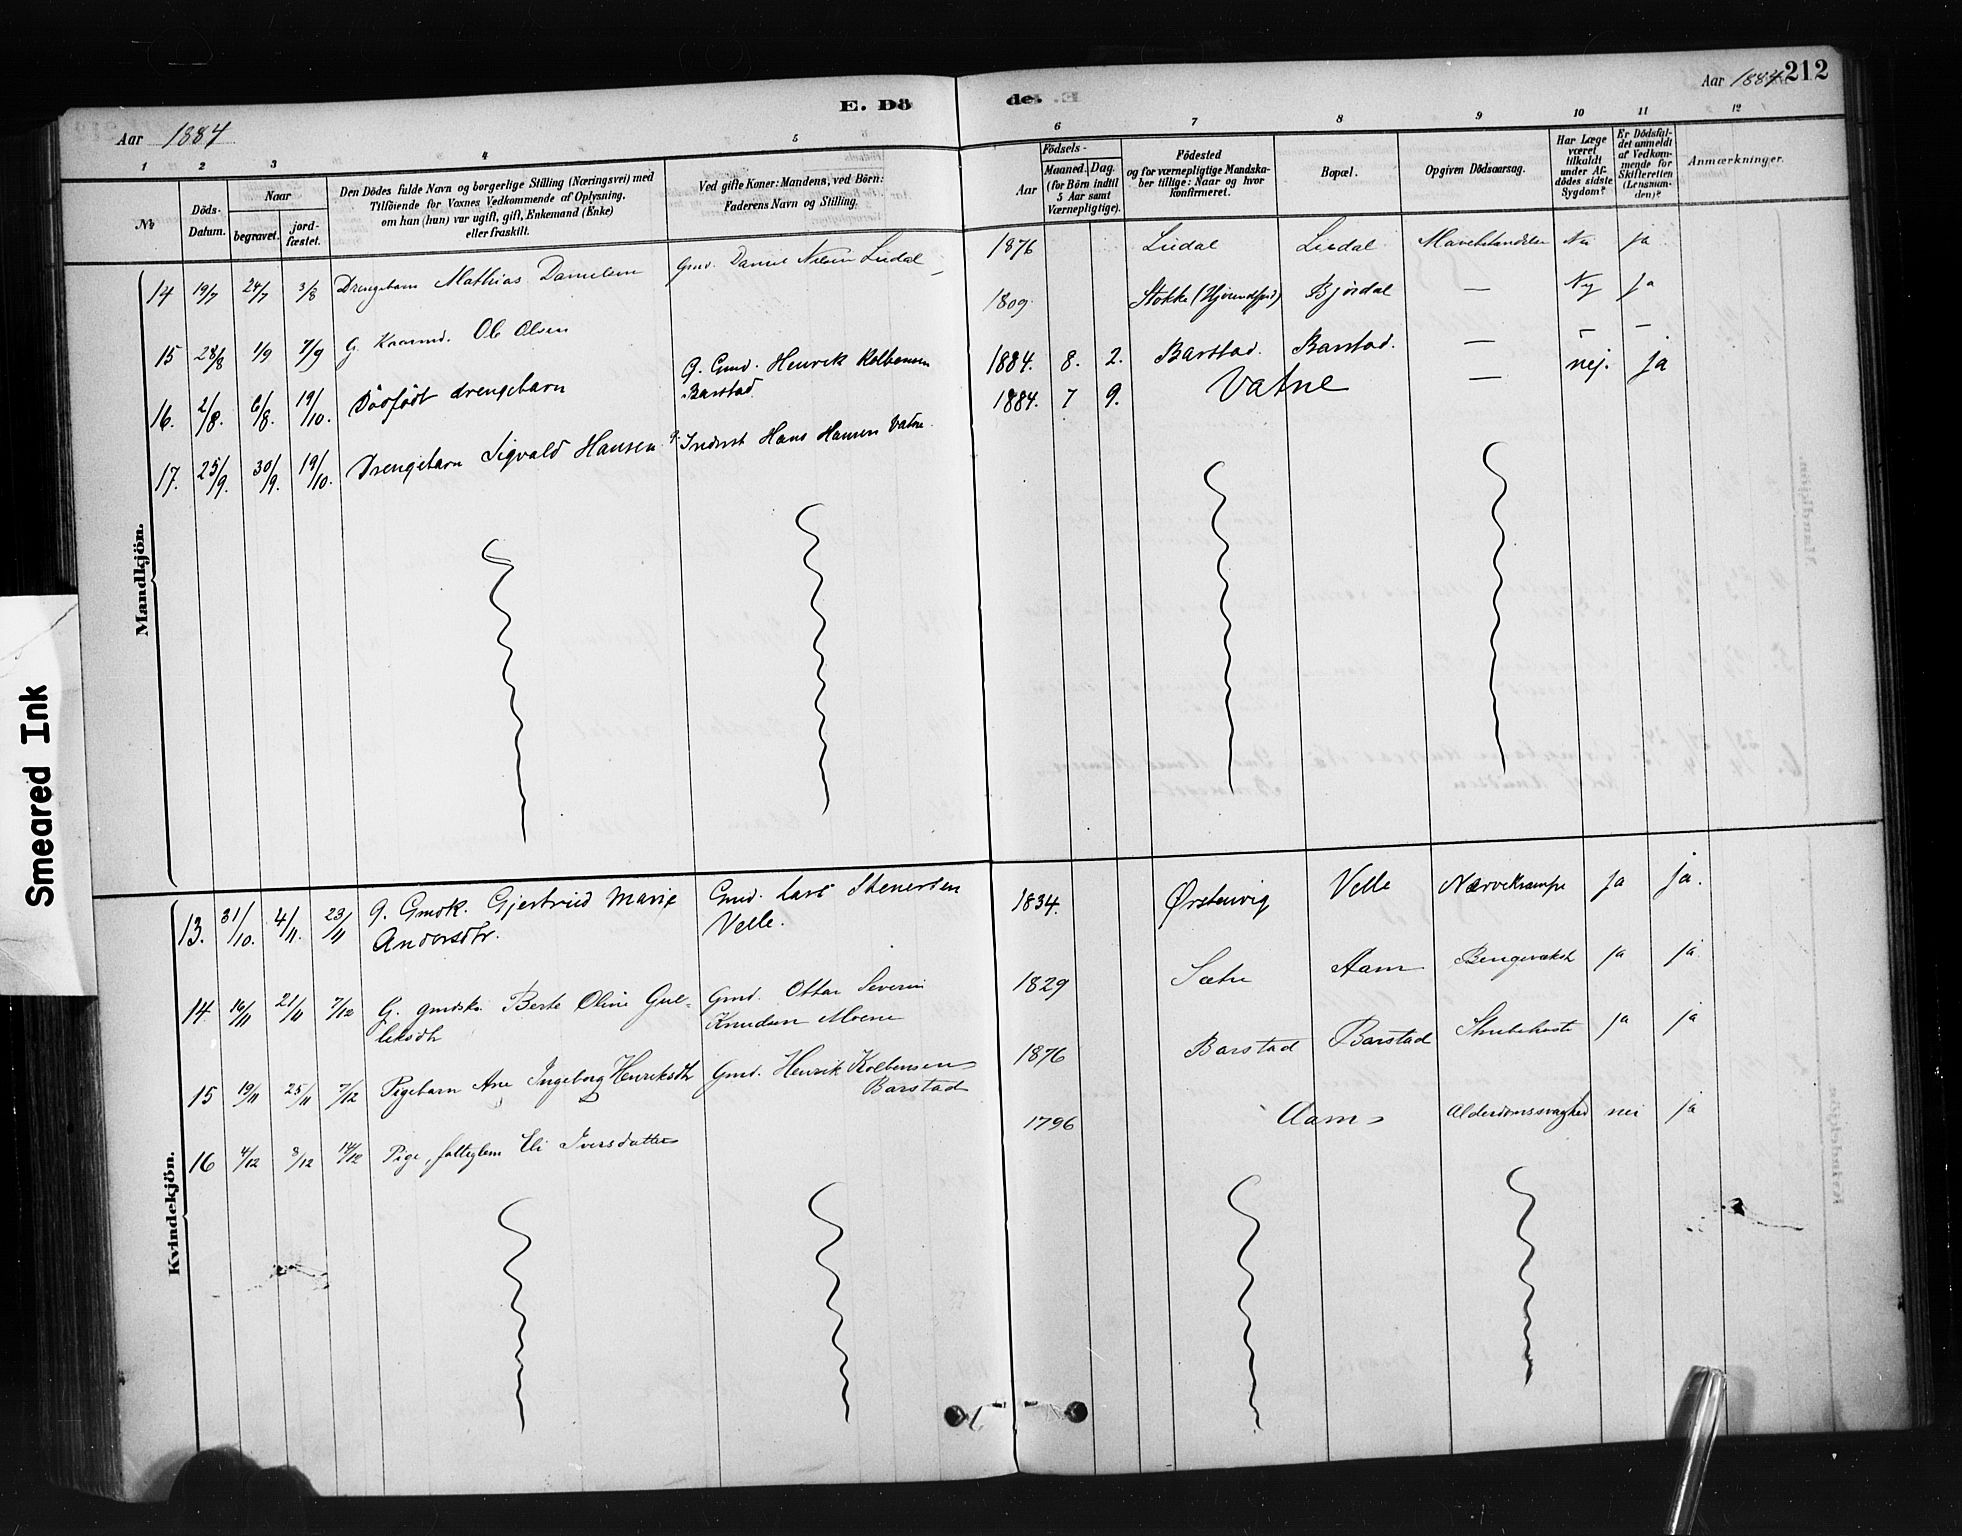 E. Dö
de.
Aar 1884
Aar 1884 212
1 2 3 4 5 6 7 8 9 10 11 12
No
Döds-Datum.
Naar
begravet.
jord-fæstet.
Den Dödes fulde Navn og borgerlige Stilling (Næringsvei) med
Tilföiende for Voxnes Vedkommende af Oplysning,
om han (hun) var ugift, gift, Enkemand (Enke)
eller fraskilt.
Ved gifte Koner: Mandens, ved Börn:
Faderens Navn og Stilling.
Födsels-
Aar
Maaned. Dag.
(for Börn indtil
5 Aar samt
Værnepligtige).
Födested
og for værnepligtige Mandska-
ber tillige: Naar og hvor
konfirmeret.
Bopæl.
Opgiven Dödsaarsag.
Har Læge
været
tilkaldt
under Af-
dödes sidste
Sygdom?
Er Dödsfal-
det anmeldt
af Vedkom-
mende for
Skifteretten
(Lensman-
den)?
Anmærkninger.
Mandkjön.
14 19/7 24/7 3/8 Drengebarn Mathias Danielsen Gmd. Daniel Nilsen 1876 ja
15 28/8 1/9 7/9 G. Kaarmd. Ole Olsen 1809 Stokke (Hjörundfjord) Björdal — Nei ja
16. 2/8. 6/8. 19/10. Dödfödt drengebarn G. Gmd. Henrik Kolbensen 1884. 8. 2. Barstad. Barstad. — — —
Barstad.
17. 25/9. 30/9. 19/10. Drengebarn Sigvald Hansen g. Inderst Hans Hansen Vatne. 1884. 7 9. Vatne — nej. ja
Kvindekjön.
13. 31/10. 4/11. 23/11 g. Gmdk. Gjertrud Marie Gmd. Lars Stenersen 1834. Ørstenvig Velle Nærvekrampe ja ja.
Andersdtr. Velle.
14 16/11 21/11 7/12 G. gmdsk. Berte Oline Gul- Gmd. Ottar Severin 1829 Sætre Aam ja ja.
leksdtr Knudsen Moene
15 19/11 25/11 7/12 Pigebarn Ane Ingeborg Henriksdtr Gmd. Henrik Kolbensen 1876 Barstad Barstad Strubehoste ja ja
Barstad
16 4/12 8/12 14/12 Pige, fattiglem Eli Iversdatter 1796 Aam Alderdomssvaghed nei ja
Smeared Ink